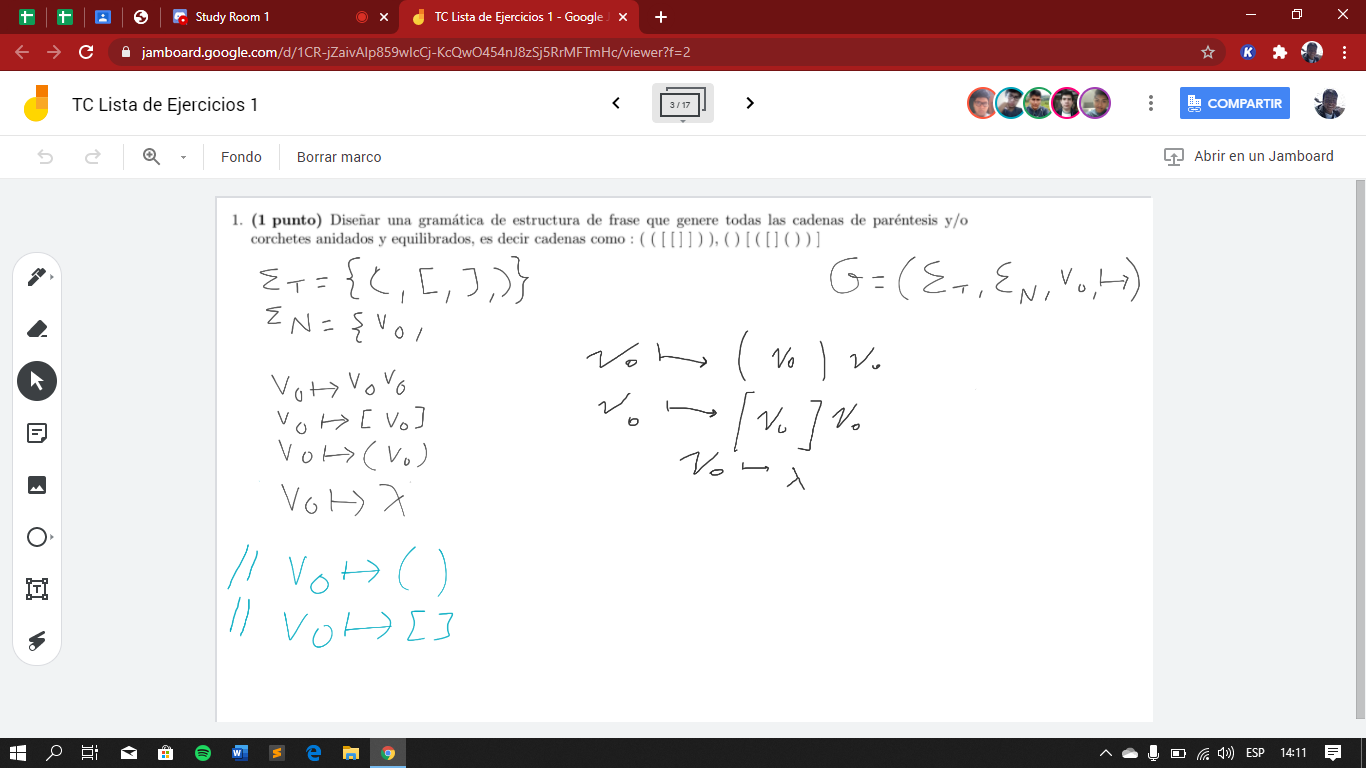 Study Room 1
TC Lista de Ejercicios 1 - Google J
jamboard.google.com/d/1CR-jZaivAlp859wIcCj-KcQwO454nJ8zSj5RrMFTmHc/viewer?f=2
TC Lista de Ejercicios 1
3 / 17
COMPARTIR
Fondo
Borrar marco
Abrir en un Jamboard
1. (1 punto) Diseñar una gramática de estructura de frase que genere todas las cadenas de paréntesis y/o
corchetes anidados y equilibrados, es decir cadenas como : ( ( [ [ ] ] ) ), ( ) [ ( [ ] ( ) ) ]
Σ_T = { (, [, ], ) }
G = (Σ_T, Σ_N, V_0, ↦)
Σ_N = { V_0,
V_0 ↦ V_0 V_0
V_0 ↦ [ V_0 ]
V_0 ↦ ( V_0 )
V_0 ↦ λ
V_0 ↦ ( V_0 ) V_0
V_0 ↦ [ V_0 ] V_0
V_0 ↦ λ
// V_0 ↦ ( )
// V_0 ↦ [ ]
ESP
14:11